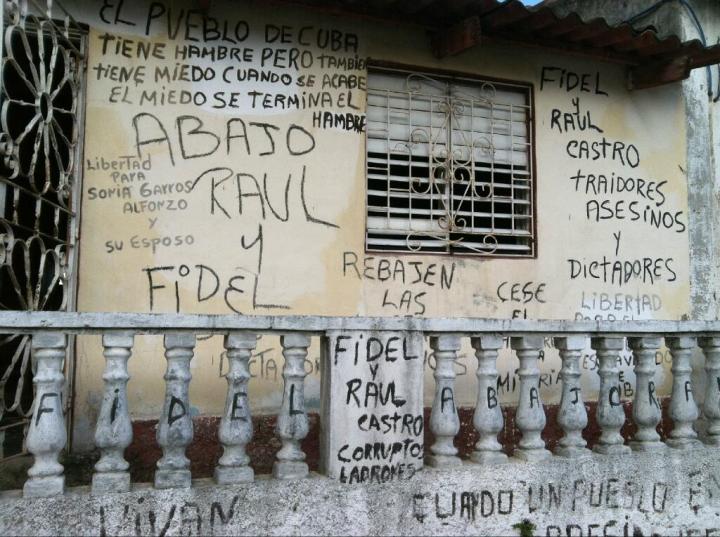 EL PUEBLO DE CUBA
TIENE HAMBRE PERO TAMBIEN
TIENE MIEDO CUANDO SE ACABE
EL MIEDO SE TERMINA EL
HAMBRE
ABAJO
RAUL
Y
FIDEL
Libertad
PARA
SONIA GARROS
ALFONZO
Y
SU ESPOSO
REBAJEN
LAS
CESE
EL
FIDEL
Y
RAUL
CASTRO
TRAIDORES
ASESINOS
Y
DICTADORES
LIBERTAD
FIDEL
FIDEL
Y
RAUL
CASTRO
CORRUPTOS
LADRONES
ABAJO RA
VIVAN
CUANDO UN PUEBLO E